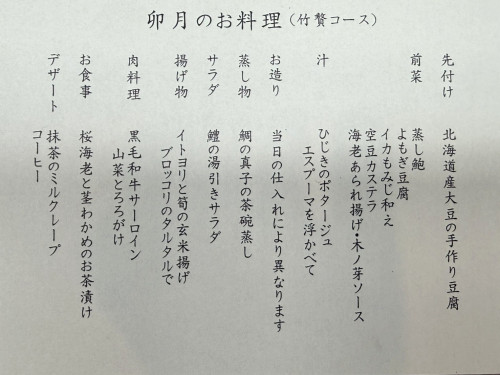 卯月のお料理(竹贅コース)
先付け 北海道産大豆の手作り豆腐
前菜 蒸し鮑
よもぎ豆腐
イカもみじ和え
空豆カステラ
海老あられ揚げ・木ノ芽ソース
汁 ひじきのポタージュ
エスプーマを浮かべて
お造り 当日の仕入れにより異なります
蒸し物 鯛の真子の茶碗蒸し
サラダ 鱧の湯引きサラダ
揚げ物 イトヨリと筍の玄米揚げ
ブロッコリのタルタルで
肉料理 黒毛和牛サーロイン
山菜とろろがけ
お食事 桜海老と茎わかめのお茶漬け
デザート 抹茶のミルクレープ
コーヒー